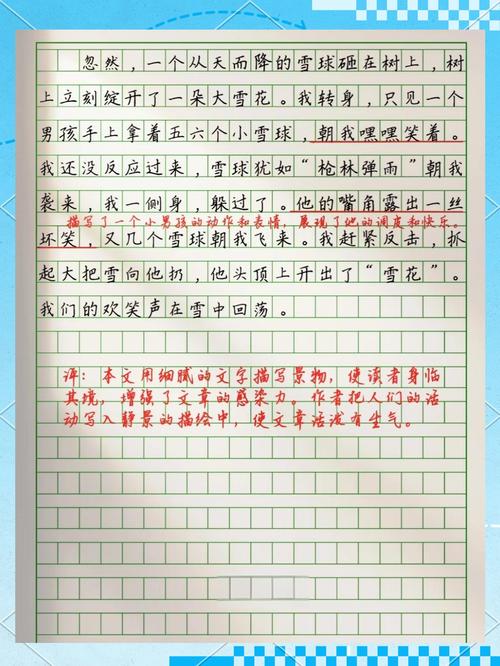 忽然，一个从天而降的雪球砸在树上，树
上立刻绽开了一朵大雪花。我转身，只见一个
男孩手上拿着五六个小雪球，朝我嘿嘿笑着。
我还没反应过来，雪球犹如“枪林弹雨”朝我
袭来，我一侧身，躲过了。他的嘴角露出一丝
描写了一个小男孩的动作和表情，展现了他的调皮和快乐。
坏笑，又几个雪球朝我飞来。我赶紧反击，扒
起大把雪向他扔，他头顶上开出了“雪花”。
我们的欢笑声在雪中回荡。
评：本文用细腻的文字描写景物，使读者身临
其境，增强了文章的感染力。作者把人们的活
动写入静景的描绘中，使文章活泼有生气。